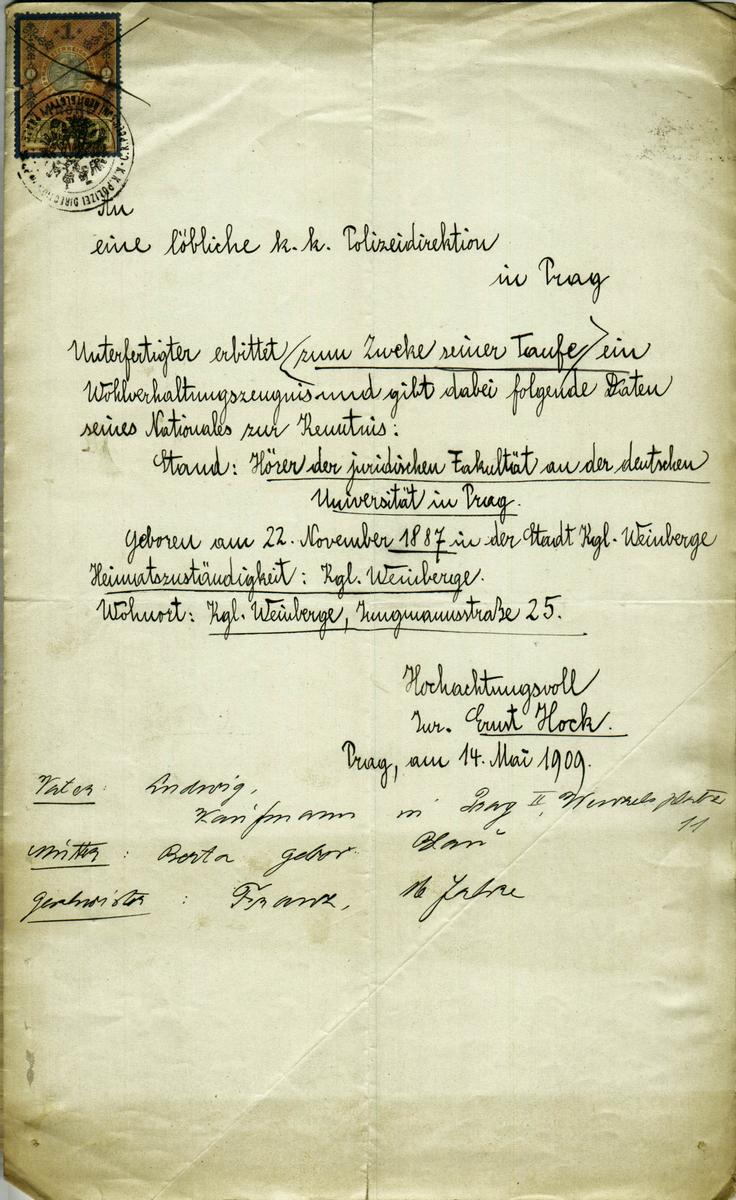 1
C.K. POLICEJNÍ ŘEDITELSTVÍ
K.K. POLIZEI DIRECTION
An
eine löbliche k. k. Polizeidirektion
in Prag
Unterfertigter erbittet (zum Zweke seiner Taufe) ein
Wohlverhaltungszeugnis und gibt dabei folgende Daten
seines Nationales zur Kenntnis:
Stand: Hörer der juridischen Fakultät an der deutschen
Universität in Prag.
Geboren am 22. November 1887 in der Stadt Kgl. Weinberge
Heimatszuständigkeit: Kgl. Weinberge.
Wohnort: Kgl. Weinberge, Jungmannsstraße 25.
Hochachtungsvoll
Jur. Ernst Hock.
Prag, am 14. Mai 1909.
Vater: Ludwig,
Kaufmann in Prag II, Wenzelsplatz
11
Mutter: Berta gebor. Blau
Geschwister: Franz, 16 Jahre